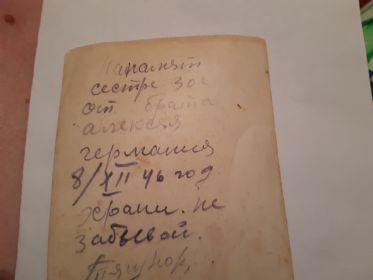 На память
сестре Зое
от брата
алексея
германия
8/XII 46 год
храни. не
забывай.